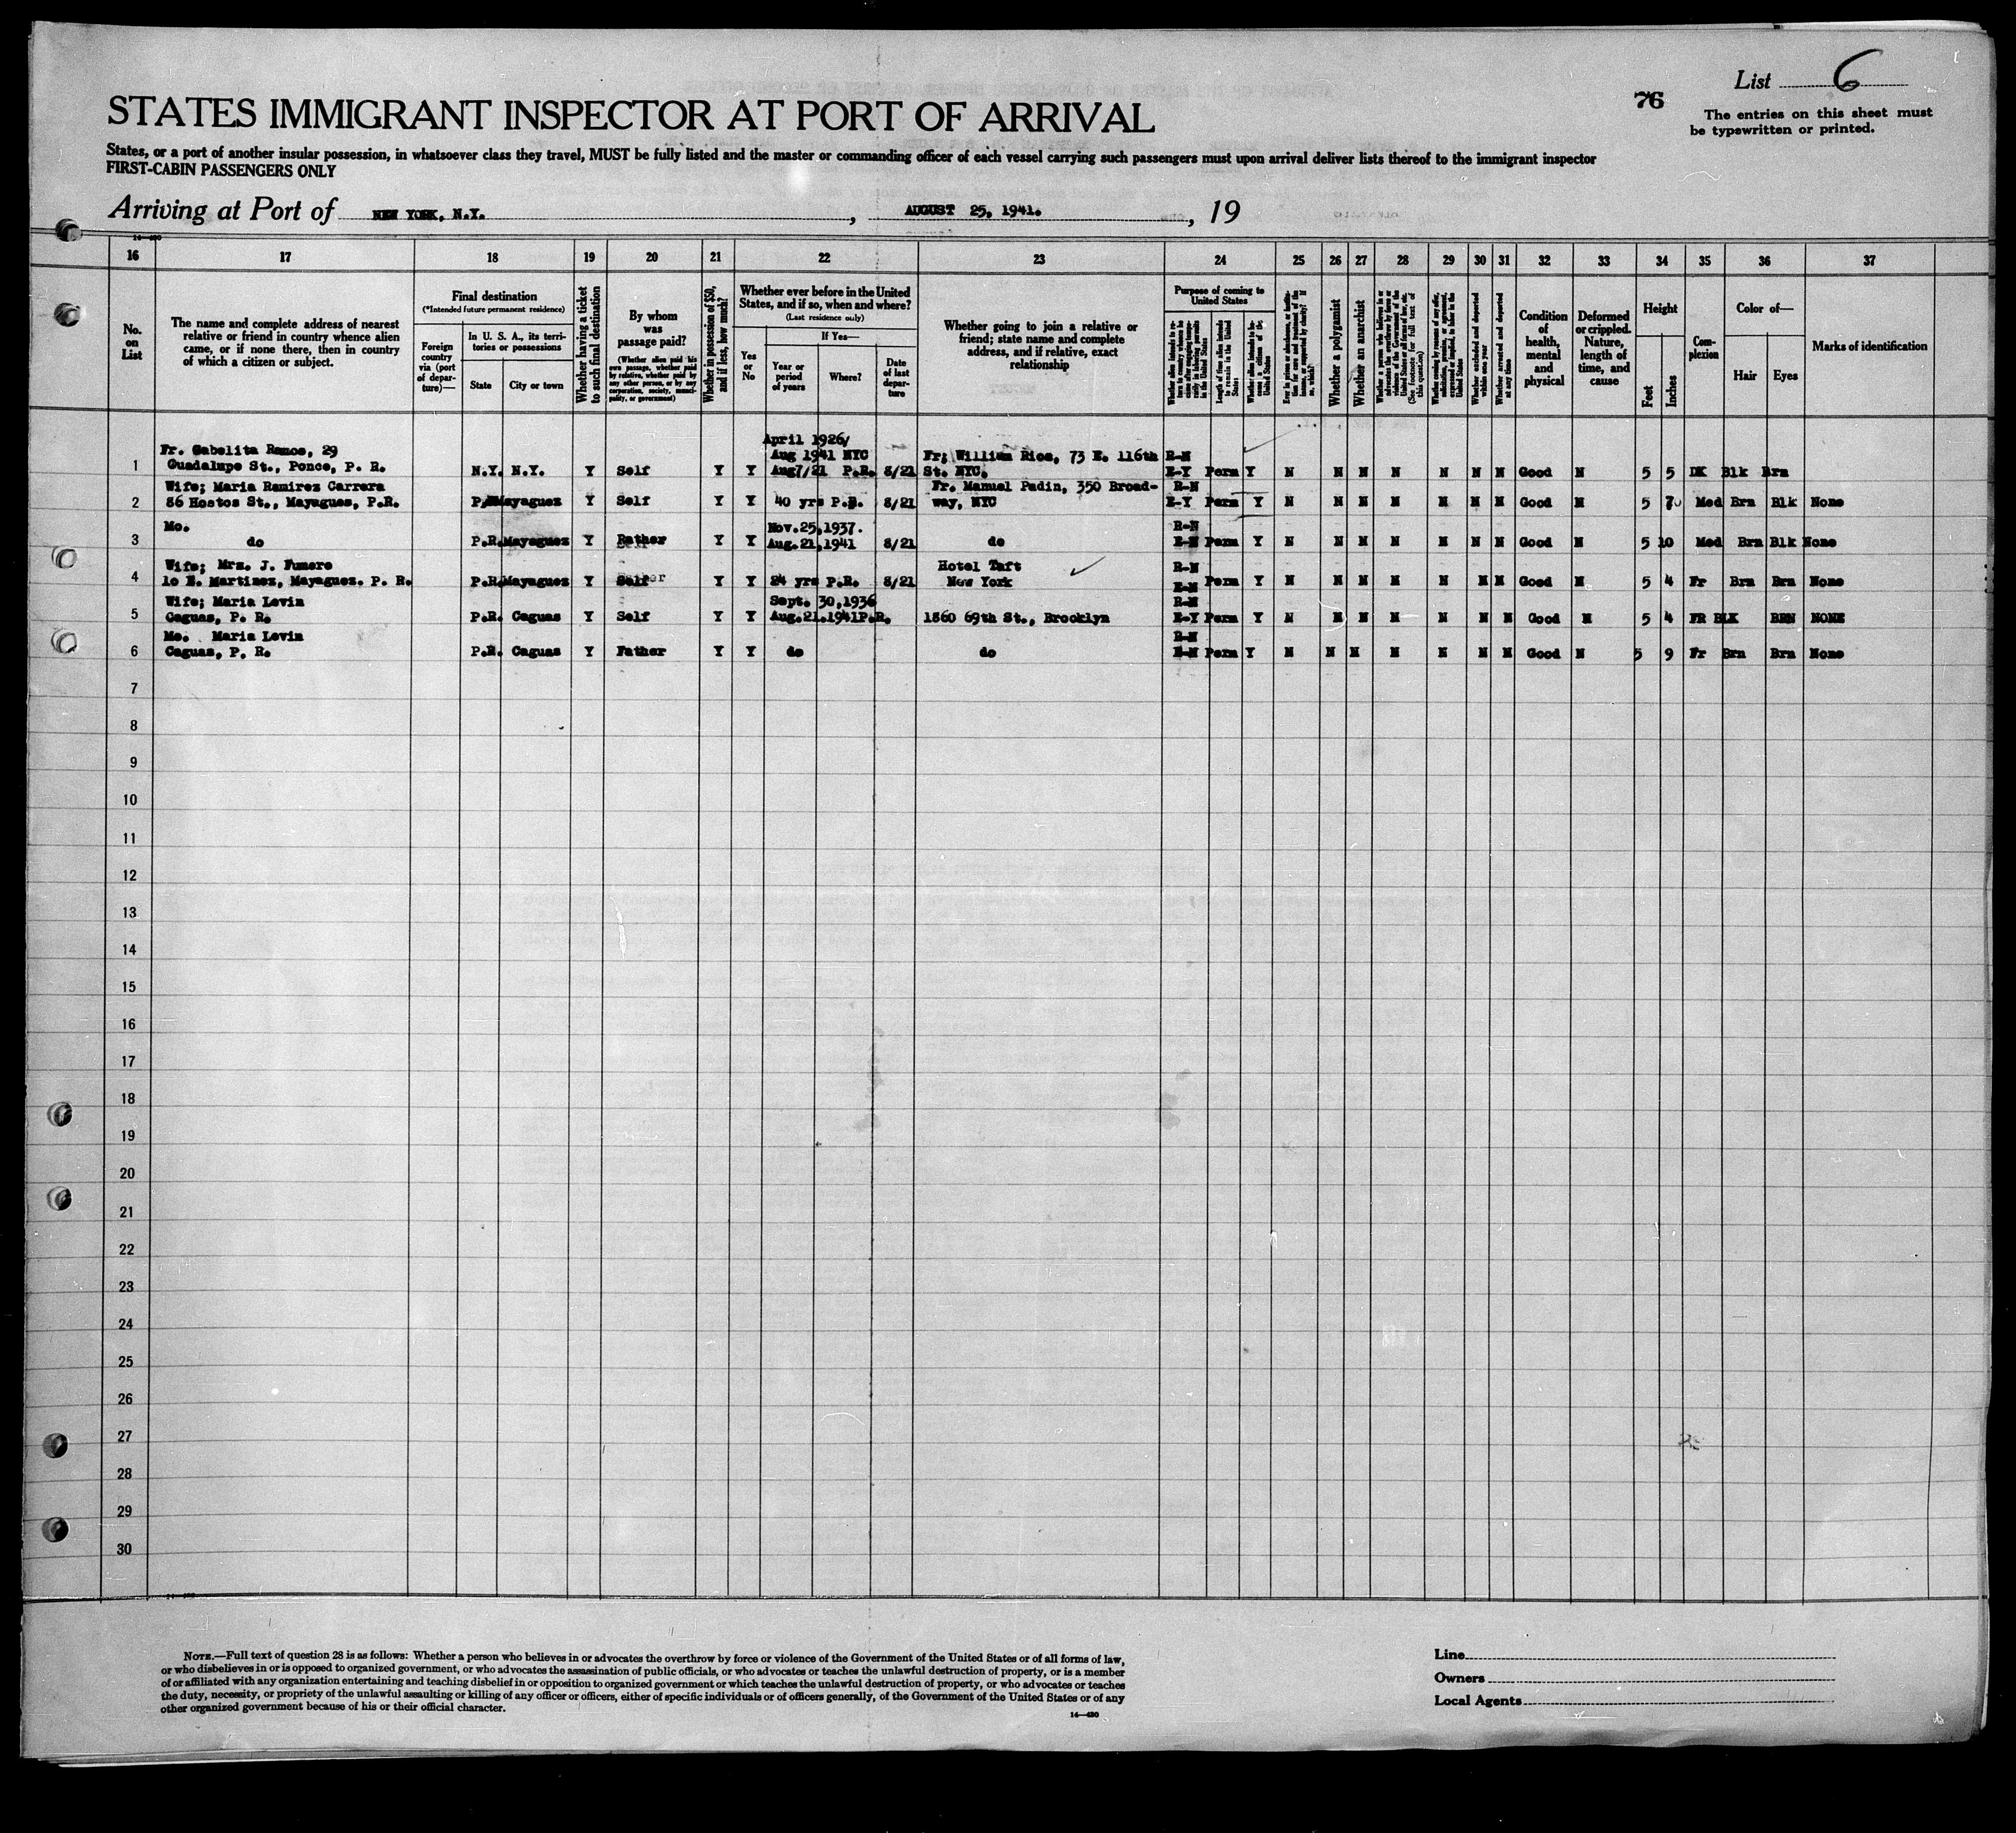 List 6
76
The entries on this sheet must
be typewritten or printed.
STATES IMMIGRANT INSPECTOR AT PORT OF ARRIVAL
States, or a port of another insular possession, in whatsoever class they travel, MUST be fully listed and the master or commanding officer of each vessel carrying such passengers must upon arrival deliver lists thereof to the immigrant inspector
FIRST-CABIN PASSENGERS ONLY
Arriving at Port of NEW YORK, N.Y. , AUGUST 25, 1941. , 19
16 17 18 19 20 21 22 23 24 25 26 27 28 29 30 31 32 33 34 35 36 37
No. on List
The name and complete address of nearest
relative or friend in country whence alien
came, or if none there, then in country
of which a citizen or subject.
Final destination
(*Intended future permanent residence)
Foreign country via (port of departure)—
In U. S. A., its territories or possessions
State
City or town
Whether having a ticket to such final destination
By whom was passage paid?
(Whether alien paid his own passage, whether paid by relative, whether paid by any other person, or by any corporation, society, municipality, or government)
Whether in possession of $50, and if less, how much?
Whether ever before in the United
States, and if so, when and where?
(Last residence only)
Yes or No
If Yes—
Year or period of years
Where?
Date of last departure
Whether going to join a relative or
friend; state name and complete
address, and if relative, exact
relationship
Purpose of coming to
United States
Length of time alien intends to remain in the United States
Whether alien intends to become a citizen of the United States
Whether a polygamist
Whether an anarchist
Whether excluded and deported within one year
Whether arrested and deported at any time
Condition of health, mental and physical
Deformed or crippled. Nature, length of time, and cause
Height
Feet
Inches
Complexion
Color of—
Hair
Eyes
Marks of identification
April 1926/
Fr. Gabelita Ramos, 29 Aug 1941 NYC Fr; William Rios, 73 E. 116th R-N
1 Guadalupe St., Ponce, P. R. N.Y. N.Y. Y Self Y Y Aug7/21 P.R. 8/21 St. NYC. E-Y Perm Y N N N N N N N Good N 5 5 DK Blk Brn
Wife; Maria Ramirez Carrera Fr. Manuel Padin, 350 Broad- R-N
2 86 Hostos St., Mayaguez, P.R. Mayaguez Y Self Y Y 40 yrs P.R. 8/21 way, NYC E-Y Perm Y N N N N N N N Good N 5 Med Brn Blk None
Mo. Nov.25,1937. R-N
3 do P.R. Mayaguez Y Father Y Y Aug.21,1941 8/21 do E-N Perm Y N N N N N N N Good N 5 10 Med Brn Blk None
Wife; Mrs. J. Fumero Hotel Taft R-N
4 10 E. Martinez, Mayaguez. P. R. P.R. Mayaguez Y Self Y Y 24 yrs P.R. 8/21 New York E-N Perm Y N N N N N N N Good N 5 4 Fr Brn Brn None
Wife; Maria Levin Sept. 30,1936 R-N
5 Caguas, P. R. P.R. Caguas Y Self Y Y Aug.21.1941P.R. 1860 69th St., Brooklyn E-Y Perm Y N N N N N N N Good N 5 4 FR BLK BRN NONE
Mo. Maria Levin R-N
6 Caguas, P. R. P.R. Caguas Y Father Y Y do do E-N Perm Y N N N N N N N Good N 5 9 Fr Brn Brn None
7
8
9
10
11
12
13
14
15
16
17
18
19
20
21
22
23
24
25
26
27
28
29
30
NOTE.—Full text of question 28 is as follows: Whether a person who believes in or advocates the overthrow by force or violence of the Government of the United States or of all forms of law,
or who disbelieves in or is opposed to organized government, or who advocates the assassination of public officials, or who advocates or teaches the unlawful destruction of property, or is a member
of or affiliated with any organization entertaining and teaching disbelief in or opposition to organized government or which teaches the unlawful destruction of property, or who advocates or teaches
the duty, necessity, or propriety of the unlawful assaulting or killing of any officer or officers, either of specific individuals or of officers generally, of the Government of the United States or of any
other organized government because of his or their official character.
14—430
Line
Owners
Local Agents